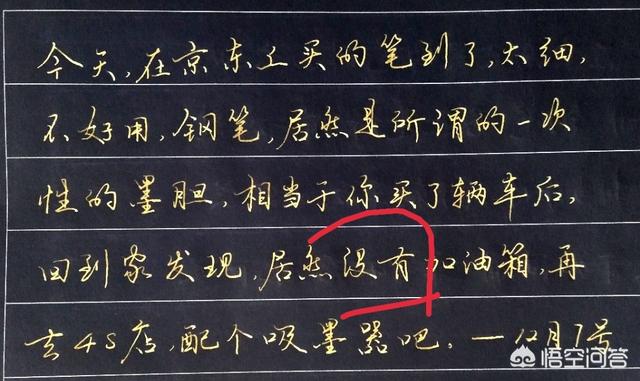 今天,在京东上买的笔到了,太细,
不好用,钢笔,居然是所谓的一次
性的墨胆,相当于你买了辆车后,
回到家发现,居然没有加油箱,再
去4S店,配个吸墨器吧,一12月7号
悟空问答